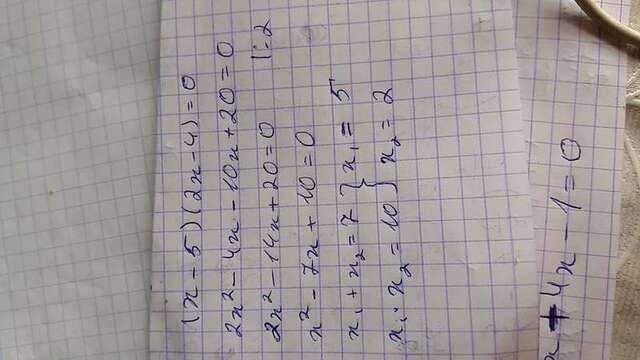 (x - 5)(2x - 4) = 0
2x² - 4x - 10x + 20 = 0
2x² - 14x + 20 = 0 |:2
x² - 7x + 10 = 0
x₁ + x₂ = 7 } x₁ = 5
x₁ · x₂ = 10 } x₂ = 2
x + 4x - 1 = 0